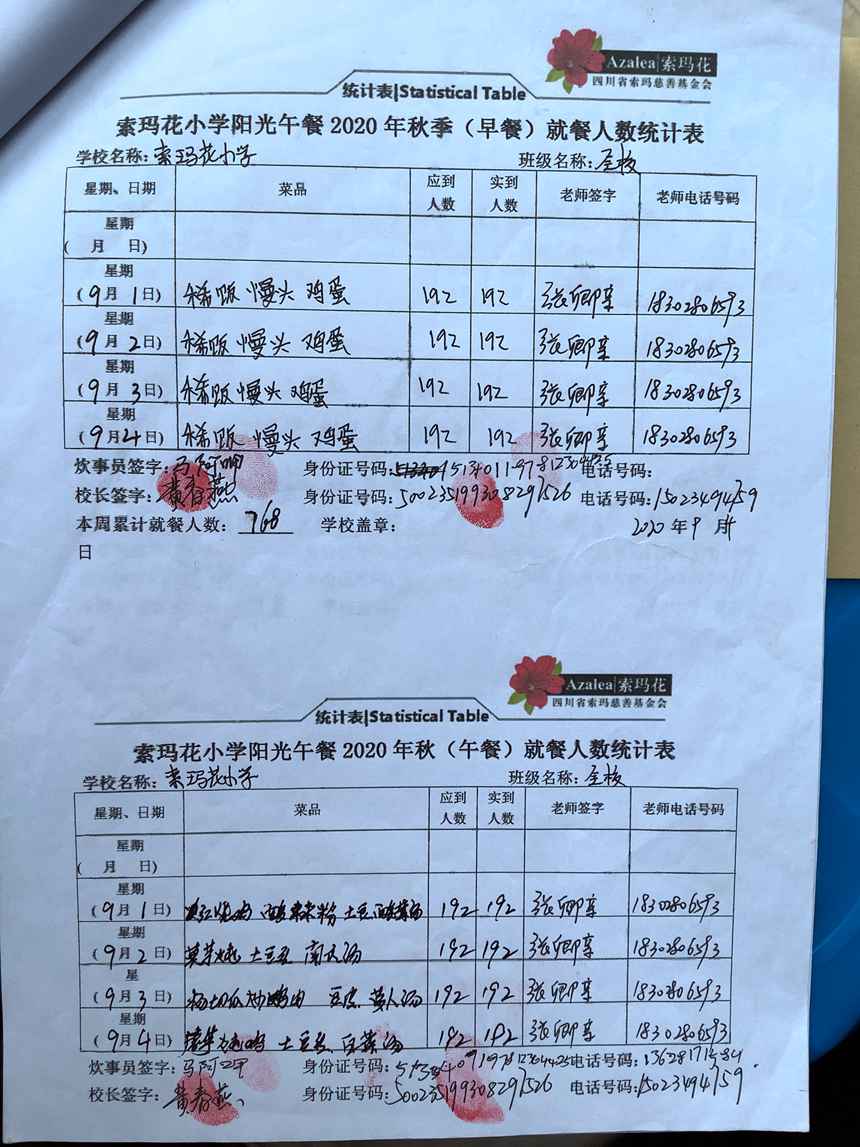 Azalea|索玛花
四川省索玛慈善基金会
统计表|Statistical Table
索玛花小学阳光午餐 2020 年秋季（早餐）就餐人数统计表
学校名称：索玛花小学 班级名称：全校
星期、日期 菜品 应到人数 实到人数 老师签字 老师电话号码
星期
( 月 日)
星期
(9月 1日) 稀饭 馒头 鸡蛋 192 192 张卿 18302806593
星期
(9月 2日) 稀饭 馒头 鸡蛋 192 192 张卿 18302806593
星期
(9月 3日) 稀饭 馒头 鸡蛋 192 192 张卿 18302806593
星期
(9月4日) 稀饭 馒头 鸡蛋 192 192 张卿 18302806593
炊事员签字：马阿 身份证号码： 电话号码：
校长签字：黄春燕 身份证号码：500235199308297526 电话号码：15023494759
本周累计就餐人数： 768 学校盖章： 2020 年 9 月
日
Azalea|索玛花
四川省索玛慈善基金会
统计表|Statistical Table
索玛花小学阳光午餐 2020 年秋（午餐）就餐人数统计表
学校名称：索玛花小学 班级名称：全校
星期、日期 菜品 应到人数 实到人数 老师签字 老师电话号码
星期
( 月 日)
星期
(9月 1日) 土豆 汤 192 192 张卿 18302806593
星期
(9月 2日) 土豆 南瓜汤 192 192 张卿 18302806593
星
(9月 3日) 汤 192 192 张卿 18302806593
星期
(9月4日) 土豆 白菜汤 192 192 张卿 18302806593
炊事员签字：马阿 身份证号码： 电话号码：
校长签字：黄春燕 身份证号码：500235199308297526 电话号码：15023494759